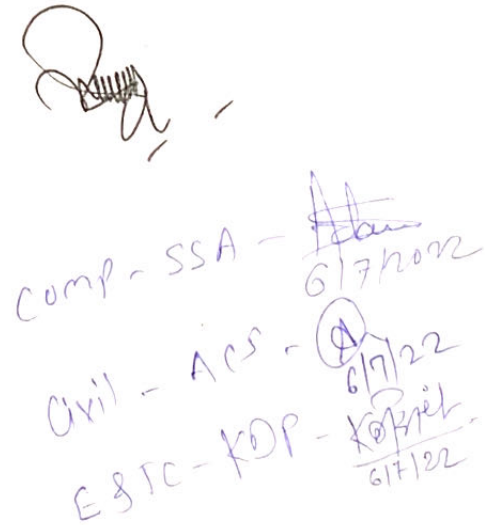 Comp - SSA -
6/7/2022
Civil - ACS - A
6/7/22
E&TC - KDP -
6/7/22